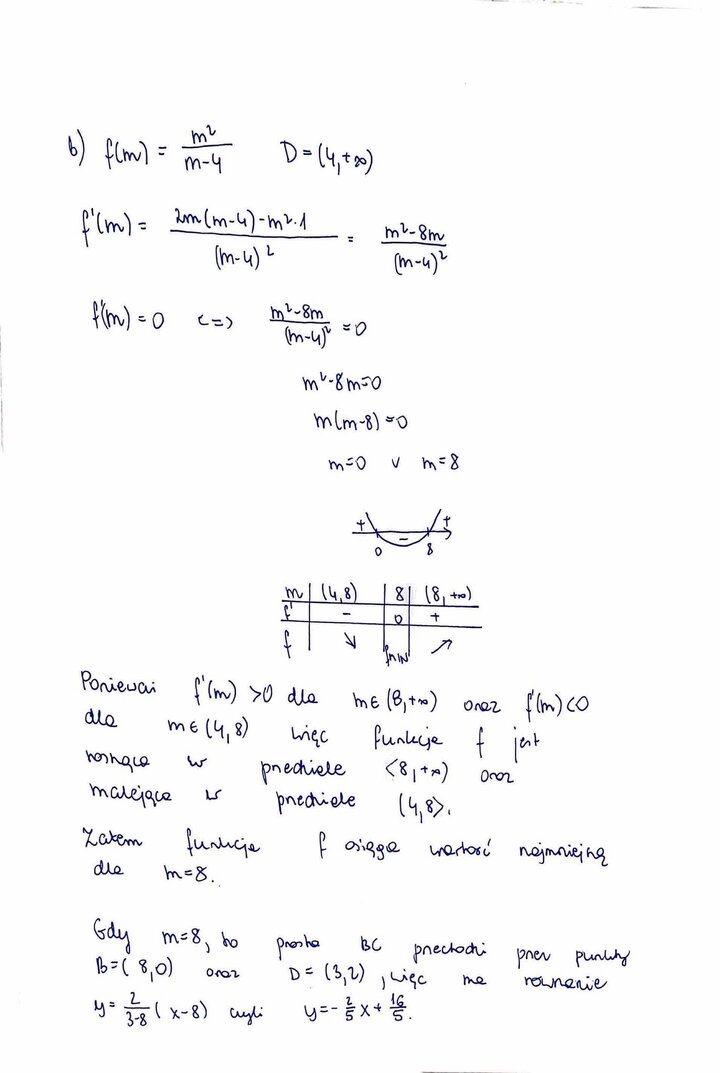 b) f(m) = m²/(m-4) D = (4, +∞)
f'(m) = (2m(m-4) - m²·1)/(m-4)² = (m²-8m)/(m-4)²
f'(m) = 0 <=> (m²-8m)/(m-4)² = 0
m²-8m=0
m(m-8)=0
m=0 ∨ m=8
+ - +
0 8
m | (4,8) | 8 | (8,+∞)
f' | - | 0 | +
f | ↘ | fmin | ↗
Ponieważ f'(m) >0 dla m∈(8,+∞) oraz f'(m)<0
dla m∈(4,8) więc funkcja f jest
rosnąca w przedziale <8,+∞) oraz
malejąca w przedziale (4,8>.
Zatem funkcja f osiąga wartość najmniejszą
dla m=8.
Gdy m=8, to prosta BC przechodzi przez punkty
B=(8,0) oraz D=(3,2), więc ma równanie
y = 2/(3-8) (x-8) czyli y=-2/5 x + 16/5.